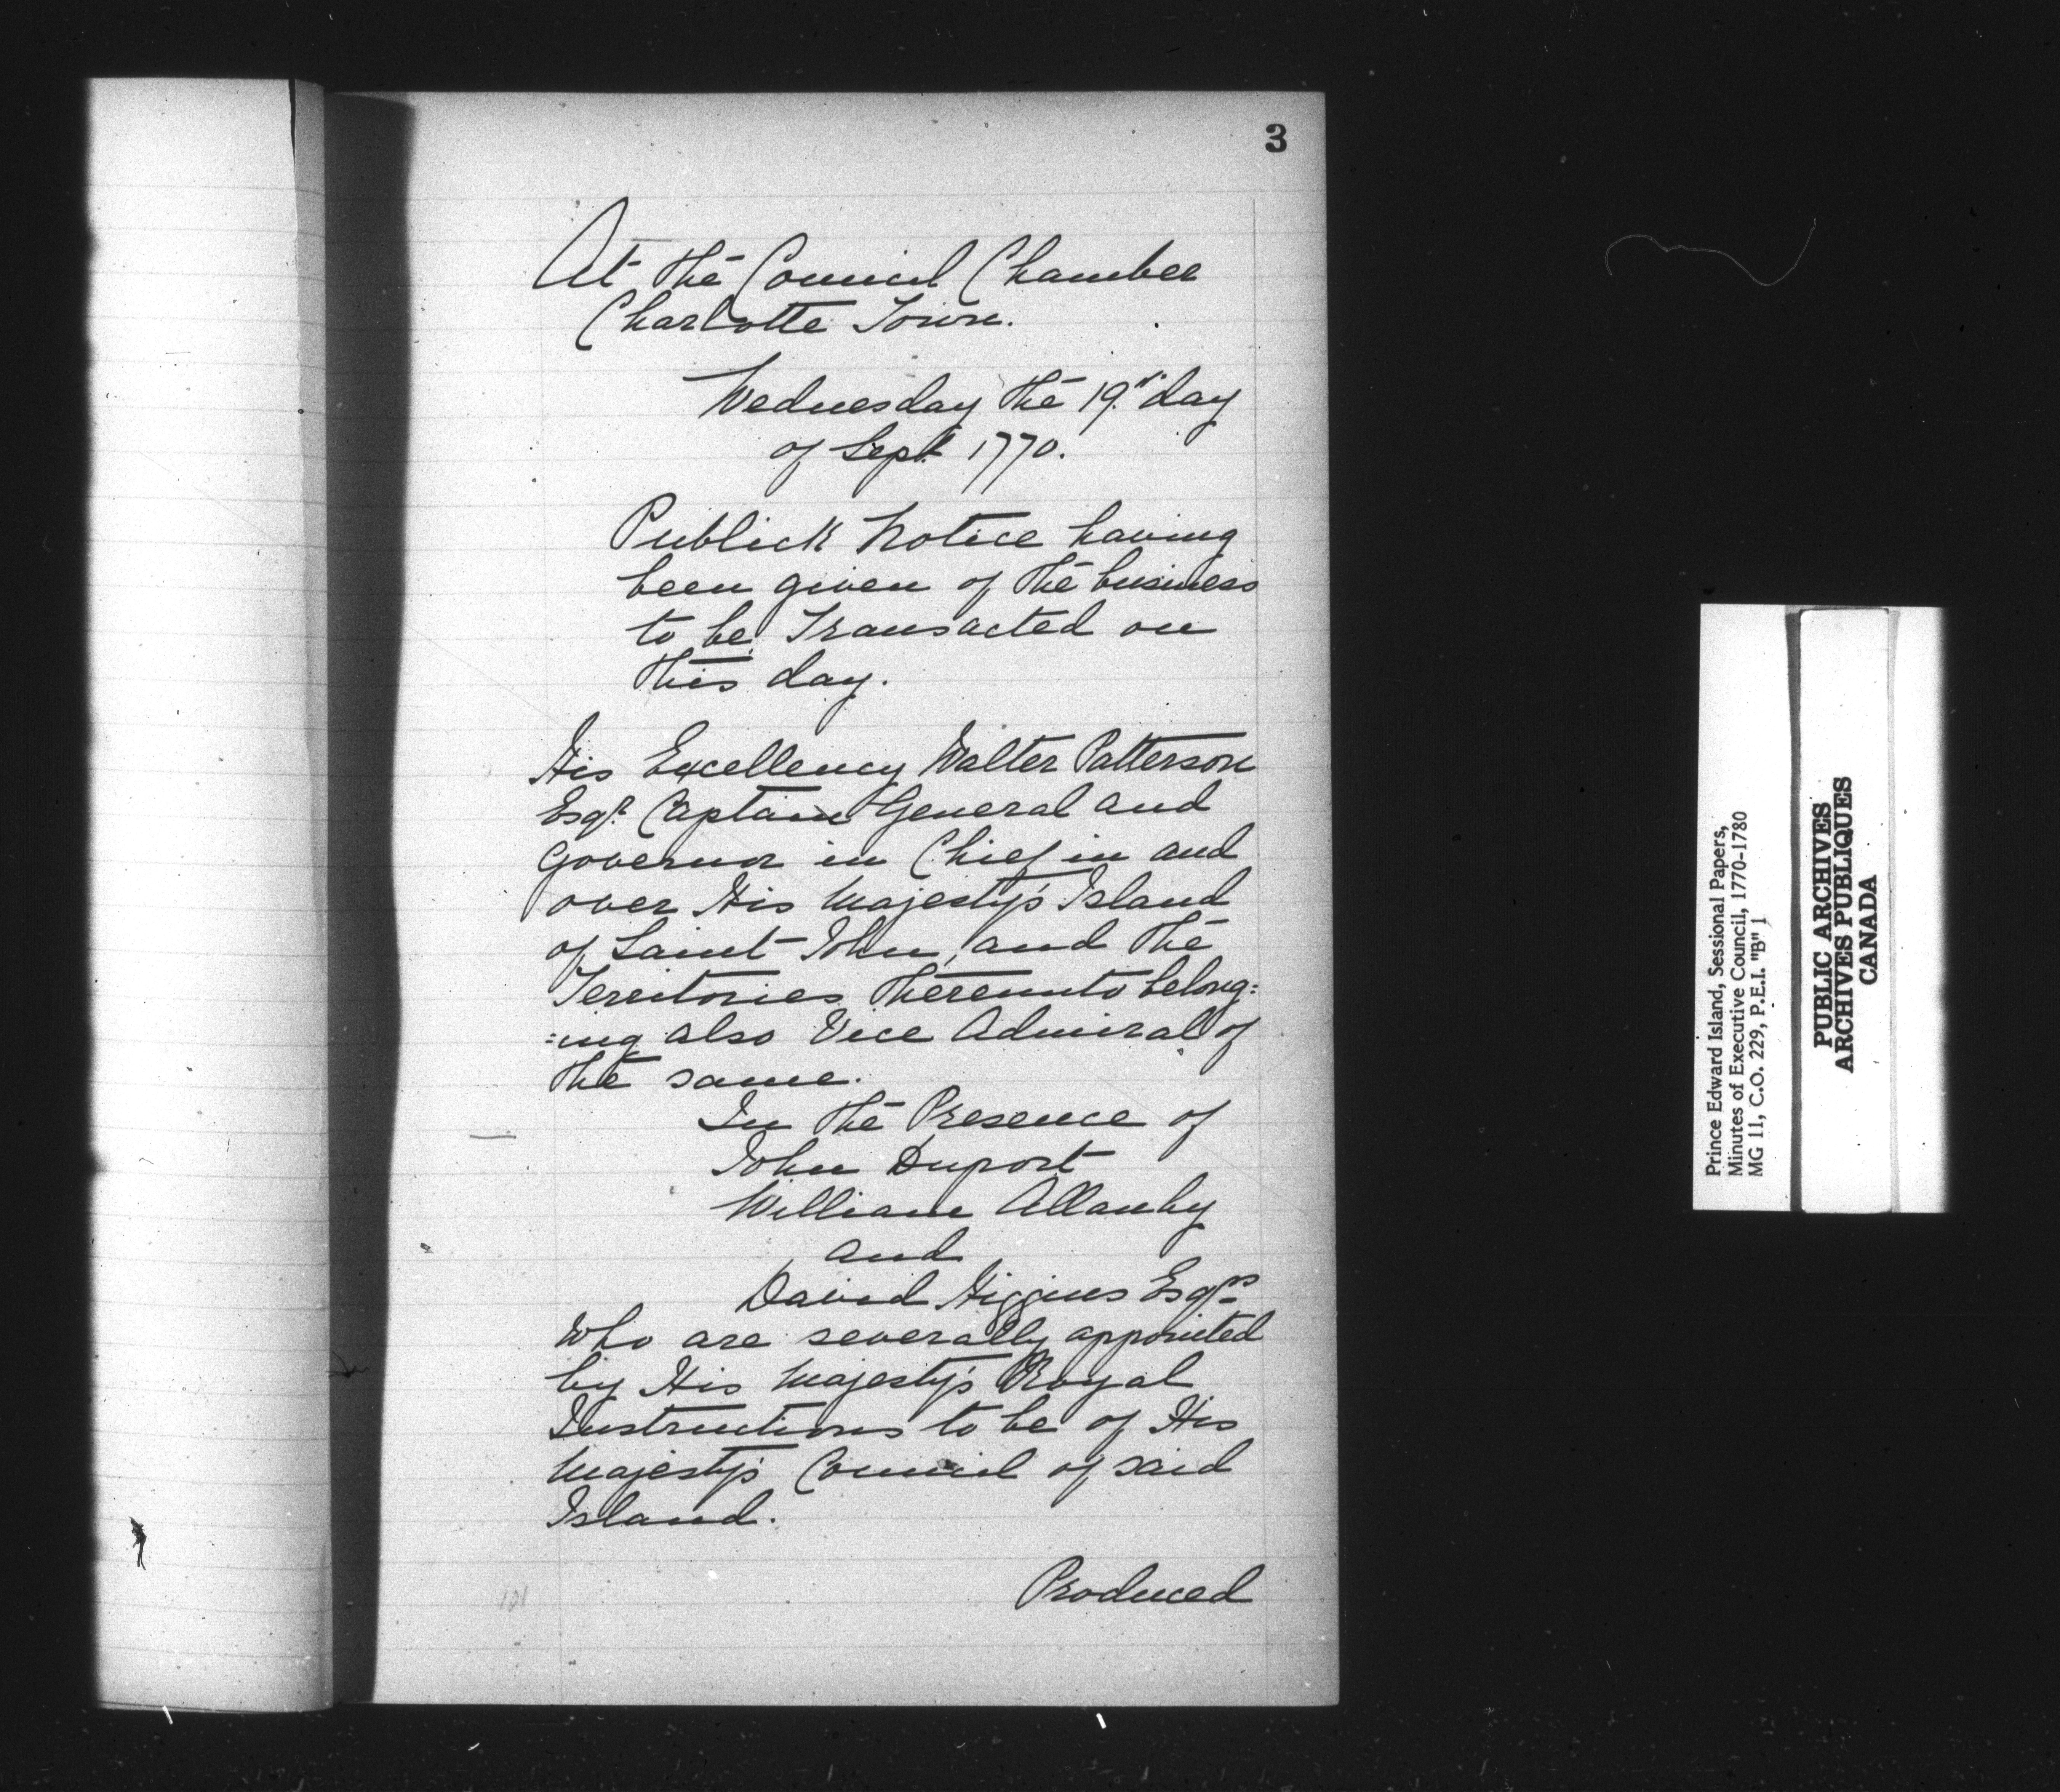 3
At the Council Chamber
Charlotte Town.
Wednesday the 19th day
of Sept. 1770.
Publick Notice having
been given of the business
to be Transacted on
this day.
His Excellency Walter Patterson
Esqr. Captain General and
Governor in Chief in and
over His Majesty's Island
of Saint John, and the
Territories thereunto belong:
:ing also Vice Admiral of
the same.
In the Presence of
John Duport
William Allanby
and
David Higgins Esqrs
Who are severally appointed
by His Majesty's Royal
Instructions to be of His
Majesty's Council of said
Island.
Produced
101
Prince Edward Island, Sessional Papers,
Minutes of Executive Council, 1770-1780
MG 11, C.O. 229, P.E.I. "B" 1
PUBLIC ARCHIVES
ARCHIVES PUBLIQUES
CANADA